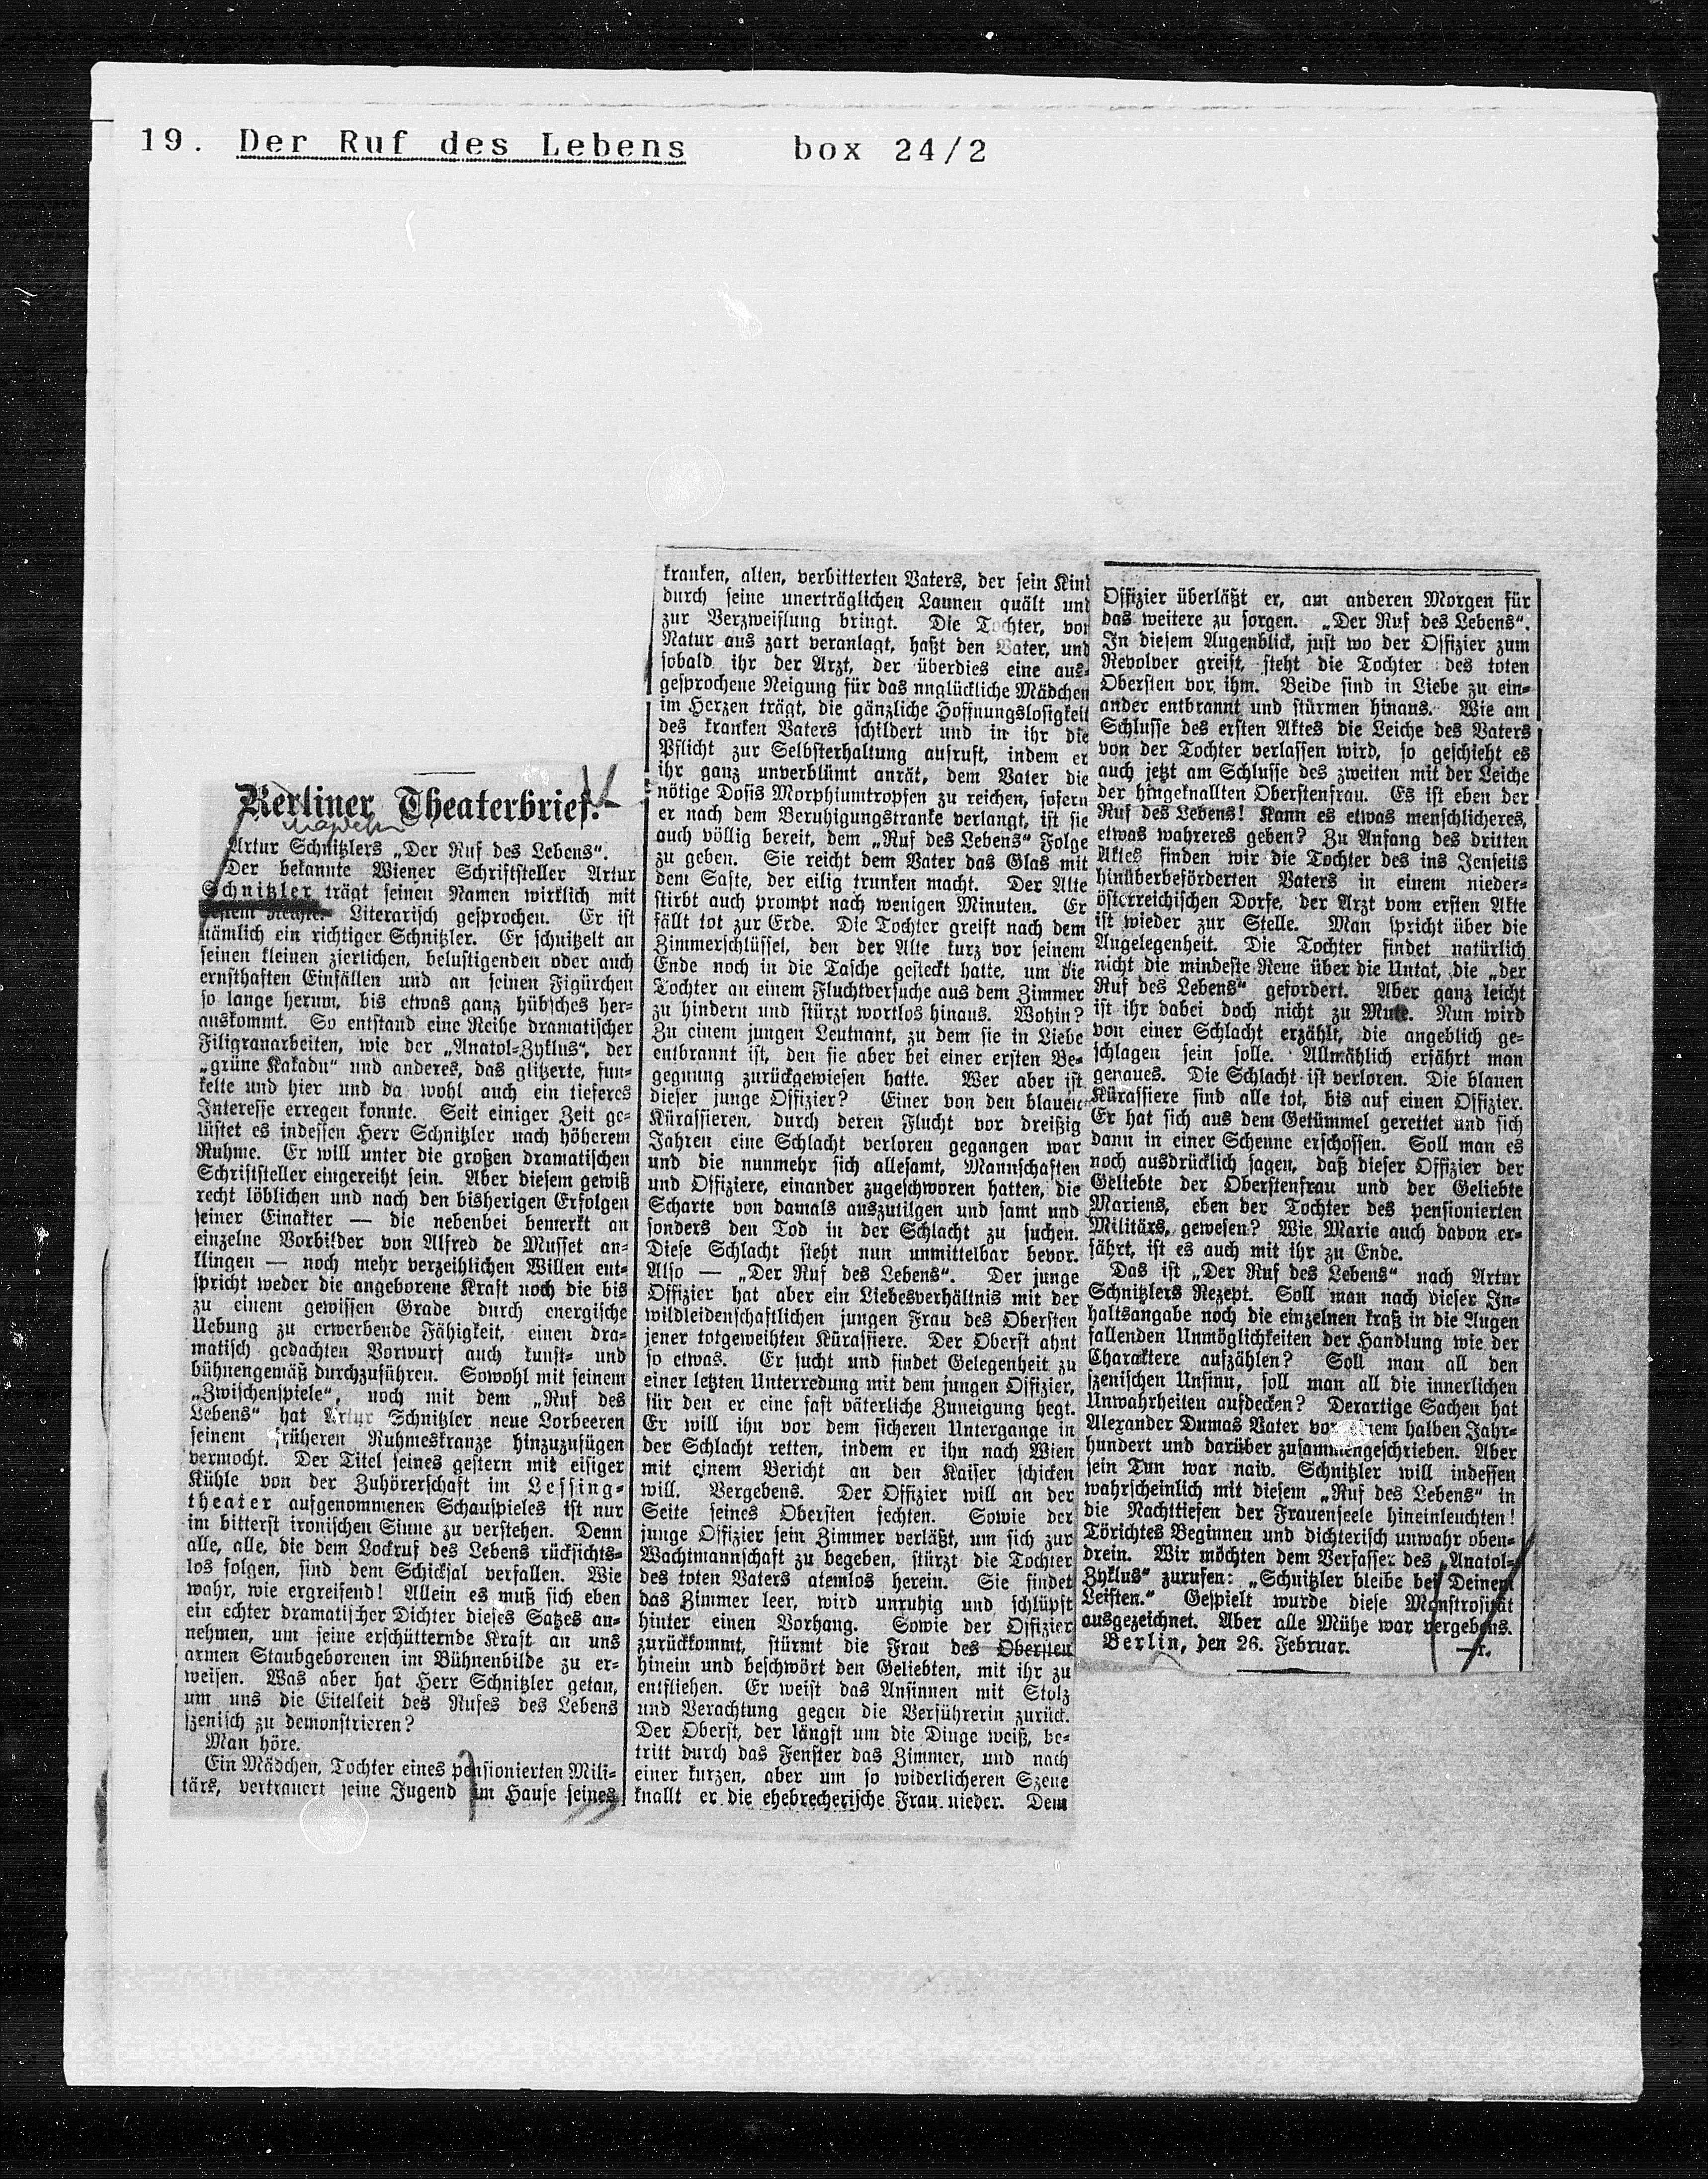 19. Der Ruf des Lebens box 24/2
Berliner Theaterbrief.
Artur Schnitzlers „Der Ruf des Lebens“.
Der bekannte Wiener Schriftsteller Artur
Schnitzler trägt seinen Namen wirklich mit
bestem Rechte. Literarisch gesprochen. Er ist
nämlich ein richtiger Schnitzler. Er schnitzelt an
seinen kleinen zierlichen, belustigenden oder auch
ernsthaften Einfällen und an seinen Figürchen
so lange herum, bis etwas ganz hübsches her-
auskommt. So entstand eine Reihe dramatischer
Filigranarbeiten, wie der „Anatol-Zyklus“, der
„grüne Kakadu“ und anderes, das glitzerte, fun-
kelte und hier und da wohl auch ein tieferes
Interesse erregen konnte. Seit einiger Zeit ge-
lüstet es indessen Herr Schnitzler nach höherem
Ruhme. Er will unter die großen dramatischen
Schriftsteller eingereiht sein. Aber diesem gewiß
recht löblichen und nach den bisherigen Erfolgen
seiner Einakter — die nebenbei bemerkt an
einzelne Vorbilder von Alfred de Musset an-
klingen — noch mehr verzeihlichen Willen ent-
spricht weder die angeborene Kraft noch die bis
zu einem gewissen Grade durch energische
Uebung zu erwerbende Fähigkeit, einen dra-
matisch gedachten Vorwurf auch kunst- und
bühnengemäß durchzuführen. Sowohl mit seinem
„Zwischenspiele“, noch mit dem „Ruf des
Lebens“ hat Artur Schnitzler neue Lorbeeren
seinem früheren Ruhmeskranze hinzuzufügen
vermocht. Der Titel seines gestern mit eisiger
Kühle von der Zuhörerschaft im Lessing-
theater aufgenommenen Schauspieles ist nur
im bitterst ironischen Sinne zu verstehen. Denn
alle, alle, die dem Lockruf des Lebens rücksichts-
los folgen, sind dem Schicksal verfallen. Wie
wahr, wie ergreifend! Allein es muß sich eben
ein echter dramatischer Dichter dieses Satzes an-
nehmen, um seine erschütternde Kraft an uns
armen Staubgeborenen im Bühnenbilde zu er-
weisen. Was aber hat Herr Schnitzler getan,
um uns die Eitelkeit des Rufes des Lebens
szenisch zu demonstrieren?
Man höre.
Ein Mädchen, Tochter eines pensionierten Mili-
tärs, vertrauert seine Jugend im Hause seines
kranken, alten, verbitterten Vaters, der sein Kind
durch seine unerträglichen Launen quält und
zur Verzweiflung bringt. Die Tochter, von
Natur aus zart veranlagt, haßt den Vater, und
sobald ihr der Arzt, der überdies eine aus-
gesprochene Neigung für das nnglückliche Mädchen
im Herzen trägt, die gänzliche Hoffnungslosigkeit
des kranken Vaters schildert und in ihr die
Pflicht zur Selbsterhaltung aufruft, indem er
ihr ganz unverblümt anrät, dem Vater die
nötige Dosis Morphiumtropfen zu reichen, sofern
er nach dem Beruhigungstranke verlangt, ist sie
auch völlig bereit, dem „Ruf des Lebens“ Folge
zu geben. Sie reicht dem Vater das Glas mit
dem Safte, der eilig trunken macht. Der Alte
stirbt auch prompt nach wenigen Minuten. Er
fällt tot zur Erde. Die Tochter greift nach dem
Zimmerschlüssel, den der Alte kurz vor seinem
Ende noch in die Tasche gesteckt hatte, um die
Tochter an einem Fluchtversuche aus dem Zimmer
zu hindern und stürzt wortlos hinaus. Wohin?
Zu einem jungen Leutnant, zu dem sie in Liebe
entbrannt ist, den sie aber bei einer ersten Be-
gegnung zurückgewiesen hatte. Wer aber ist
dieser junge Offizier? Einer von den blauen
Kürassieren, durch deren Flucht vor dreißig
Jahren eine Schlacht verloren gegangen war
und die nunmehr sich allesamt, Mannschaften
und Offiziere, einander zugeschworen hatten, die
Scharte von damals auszutilgen und samt und
sonders den Tod in der Schlacht zu suchen.
Diese Schlacht steht nun unmittelbar bevor.
Also — „Der Ruf des Lebens“. Der junge
Offizier hat aber ein Liebesverhältnis mit der
wildleidenschaftlichen jungen Frau des Obersten
jener totgeweihten Kürassiere. Der Oberst ahnt
so etwas. Er sucht und findet Gelegenheit zu
einer letzten Unterredung mit dem jungen Offizier,
für den er eine fast väterliche Zuneigung hegt.
Er will ihn vor dem sicheren Untergange in
der Schlacht retten, indem er ihn nach Wien
mit einem Bericht an den Kaiser schicken
will. Vergebens. Der Offizier will an der
Seite seines Obersten fechten. Sowie der
junge Offizier sein Zimmer verläßt, um sich zur
Wachtmannschaft zu begeben, stürzt die Tochter
des toten Vaters atemlos herein. Sie findet
das Zimmer leer, wird unruhig und schlüpft
hinter einen Vorhang. Sowie der Offizier
zurückkommt, stürmt die Frau des Obersten
hinein und beschwört den Geliebten, mit ihr zu
entfliehen. Er weist das Ansinnen mit Stolz
und Verachtung gegen die Verführerin zurück.
Der Oberst, der längst um die Dinge weiß, be-
tritt durch das Fenster das Zimmer, und nach
einer kurzen, aber um so widerlicheren Szene
knallt er die ehebrecherische Frau nieder. Dem
Offizier überläßt er, am anderen Morgen für
das weitere zu sorgen. „Der Ruf des Lebens“.
In diesem Augenblick, just wo der Offizier zum
Revolver greift, steht die Tochter des toten
Obersten vor ihm. Beide sind in Liebe zu ein-
ander entbrannt und stürmen hinaus. Wie am
Schlusse des ersten Aktes die Leiche des Vaters
von der Tochter verlassen wird, so geschieht es
auch jetzt am Schlusse des zweiten mit der Leiche
der hingeknallten Oberstenfrau. Es ist eben der
Ruf des Lebens! Kann es etwas menschlicheres,
etwas wahreres geben? Zu Anfang des dritten
Aktes finden wir die Tochter des ins Jenseits
hinüberbeförderten Vaters in einem nieder-
österreichischen Dorfe, der Arzt vom ersten Akte
ist wieder zur Stelle. Man spricht über die
Angelegenheit. Die Tochter findet natürlich
nicht die mindeste Reue über die Untat, die „der
Ruf des Lebens“ gefordert. Aber ganz leicht
ist ihr dabei doch nicht zu Mute. Nun wird
von einer Schlacht erzählt, die angeblich ge-
schlagen sein solle. Allmählich erfährt man
genaues. Die Schlacht ist verloren. Die blauen
Kürassiere sind alle tot, bis auf einen Offizier.
Er hat sich aus dem Getümmel gerettet und sich
dann in einer Scheune erschossen. Soll man es
noch ausdrücklich sagen, daß dieser Offizier der
Geliebte der Oberstenfrau und der Geliebte
Mariens, eben der Tochter des pensionierten
Militärs, gewesen? Wie Marie auch davon er-
fährt, ist es auch mit ihr zu Ende.
Das ist „Der Ruf des Lebens“ nach Artur
Schnitzlers Rezept. Soll man nach dieser In-
haltsangabe noch die einzelnen kraß in die Augen
fallenden Unmöglichkeiten der Handlung wie der
Charaktere aufzählen? Soll man all den
szenischen Unsinn, soll man all die innerlichen
Unwahrheiten aufdecken? Derartige Sachen hat
Alexander Dumas Vater vor einem halben Jahr-
hundert und darüber zusammengeschrieben. Aber
sein Tun war naiv. Schnitzler will indessen
wahrscheinlich mit diesem „Ruf des Lebens“ in
die Nachttiefen der Frauenseele hineinleuchten!
Törichtes Beginnen und dichterisch unwahr oben-
drein. Wir möchten dem Verfasser des „Anatol-
Zyklus“ zurufen: „Schnitzler bleibe bei Deinem
Leisten.“ Gespielt wurde diese Monstrosität
ausgezeichnet. Aber alle Mühe war vergebens.
Berlin, den 26. Februar. —r.